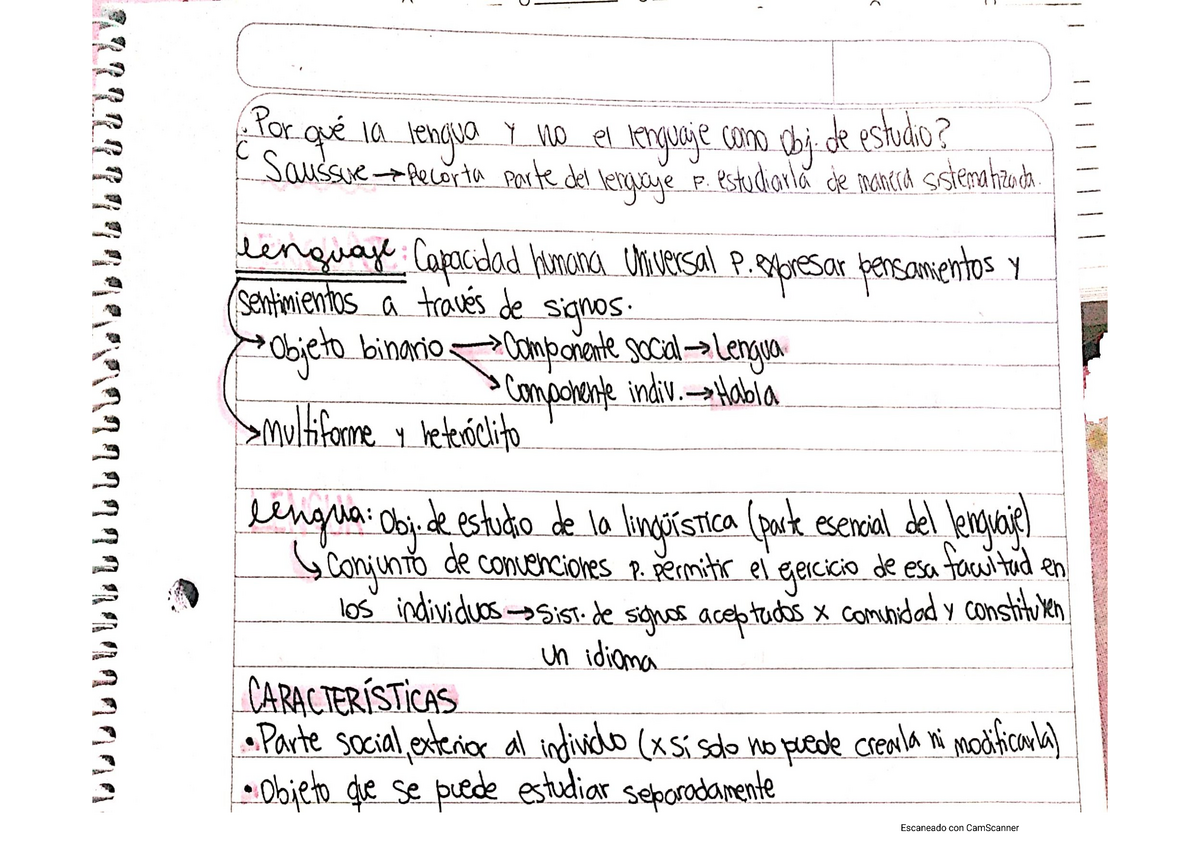 ¿Por qué la lengua y no el lenguaje como obj. de estudio?
Saussure → Recorta parte del lenguaje p. estudiarla de manera sistematizada.
Lenguaje: Capacidad humana universal p. expresar pensamientos y
sentimientos a través de signos.
→ Objeto binario → Componente social → Lengua
→ Componente indiv. → Habla
→ Multiforme y heteróclito
Lengua: Obj. de estudio de la lingüística (parte esencial del lenguaje)
↳ Conjunto de convenciones p. permitir el ejercicio de esa facultad en
los individuos → Sist. de signos aceptados x comunidad y constituyen
un idioma
CARACTERÍSTICAS
• Parte social, exterior al individuo (x sí solo no puede crearla ni modificarla)
• Objeto que se puede estudiar separadamente
Escaneado con CamScanner